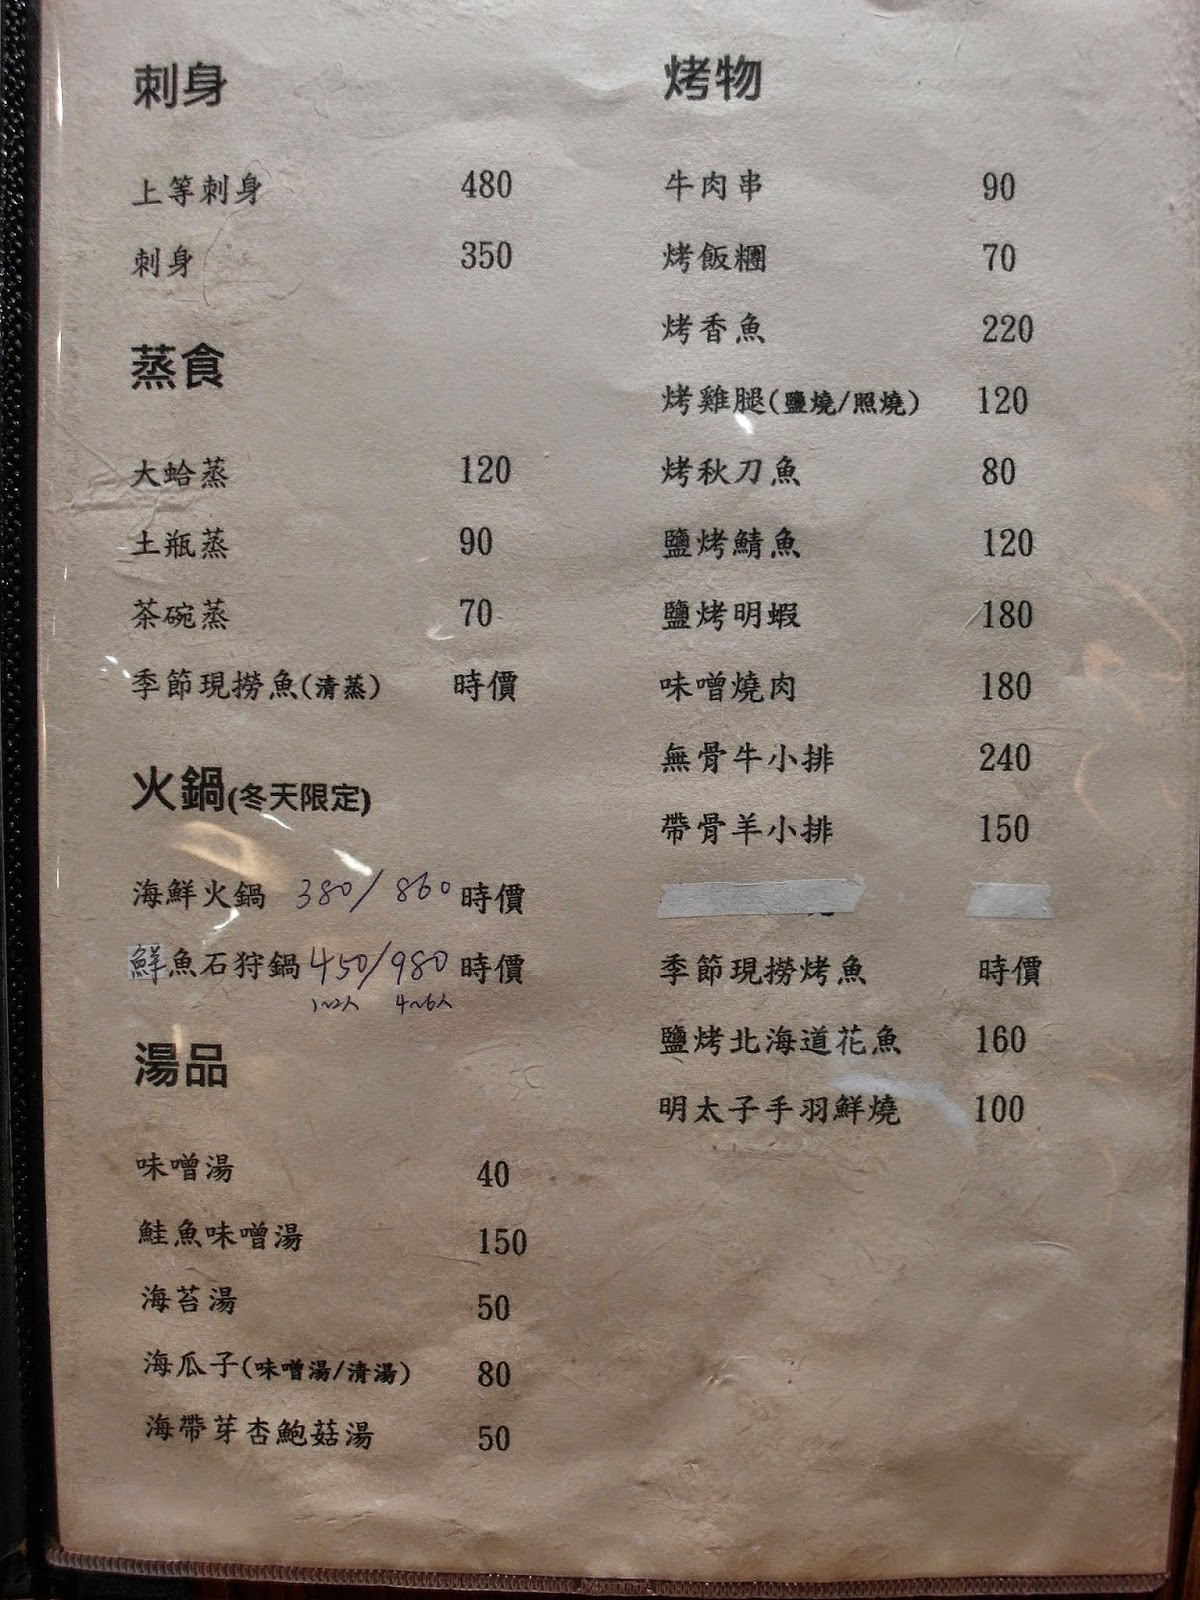 刺身
上等刺身 480
刺身 350
蒸食
大蛤蒸 120
土瓶蒸 90
茶碗蒸 70
季節現撈魚(清蒸) 時價
火鍋(冬天限定)
海鮮火鍋 380/860 時價
鮮魚石狩鍋 450/980 時價
1~2人 4~6人
湯品
味噌湯 40
鮭魚味噌湯 150
海苔湯 50
海瓜子(味噌湯/清湯) 80
海帶芽杏鮑菇湯 50
烤物
牛肉串 90
烤飯糰 70
烤香魚 220
烤雞腿(鹽燒/照燒) 120
烤秋刀魚 80
鹽烤鯖魚 120
鹽烤明蝦 180
味噌燒肉 180
無骨牛小排 240
帶骨羊小排 150
季節現撈烤魚 時價
鹽烤北海道花魚 160
明太子手羽鮮燒 100